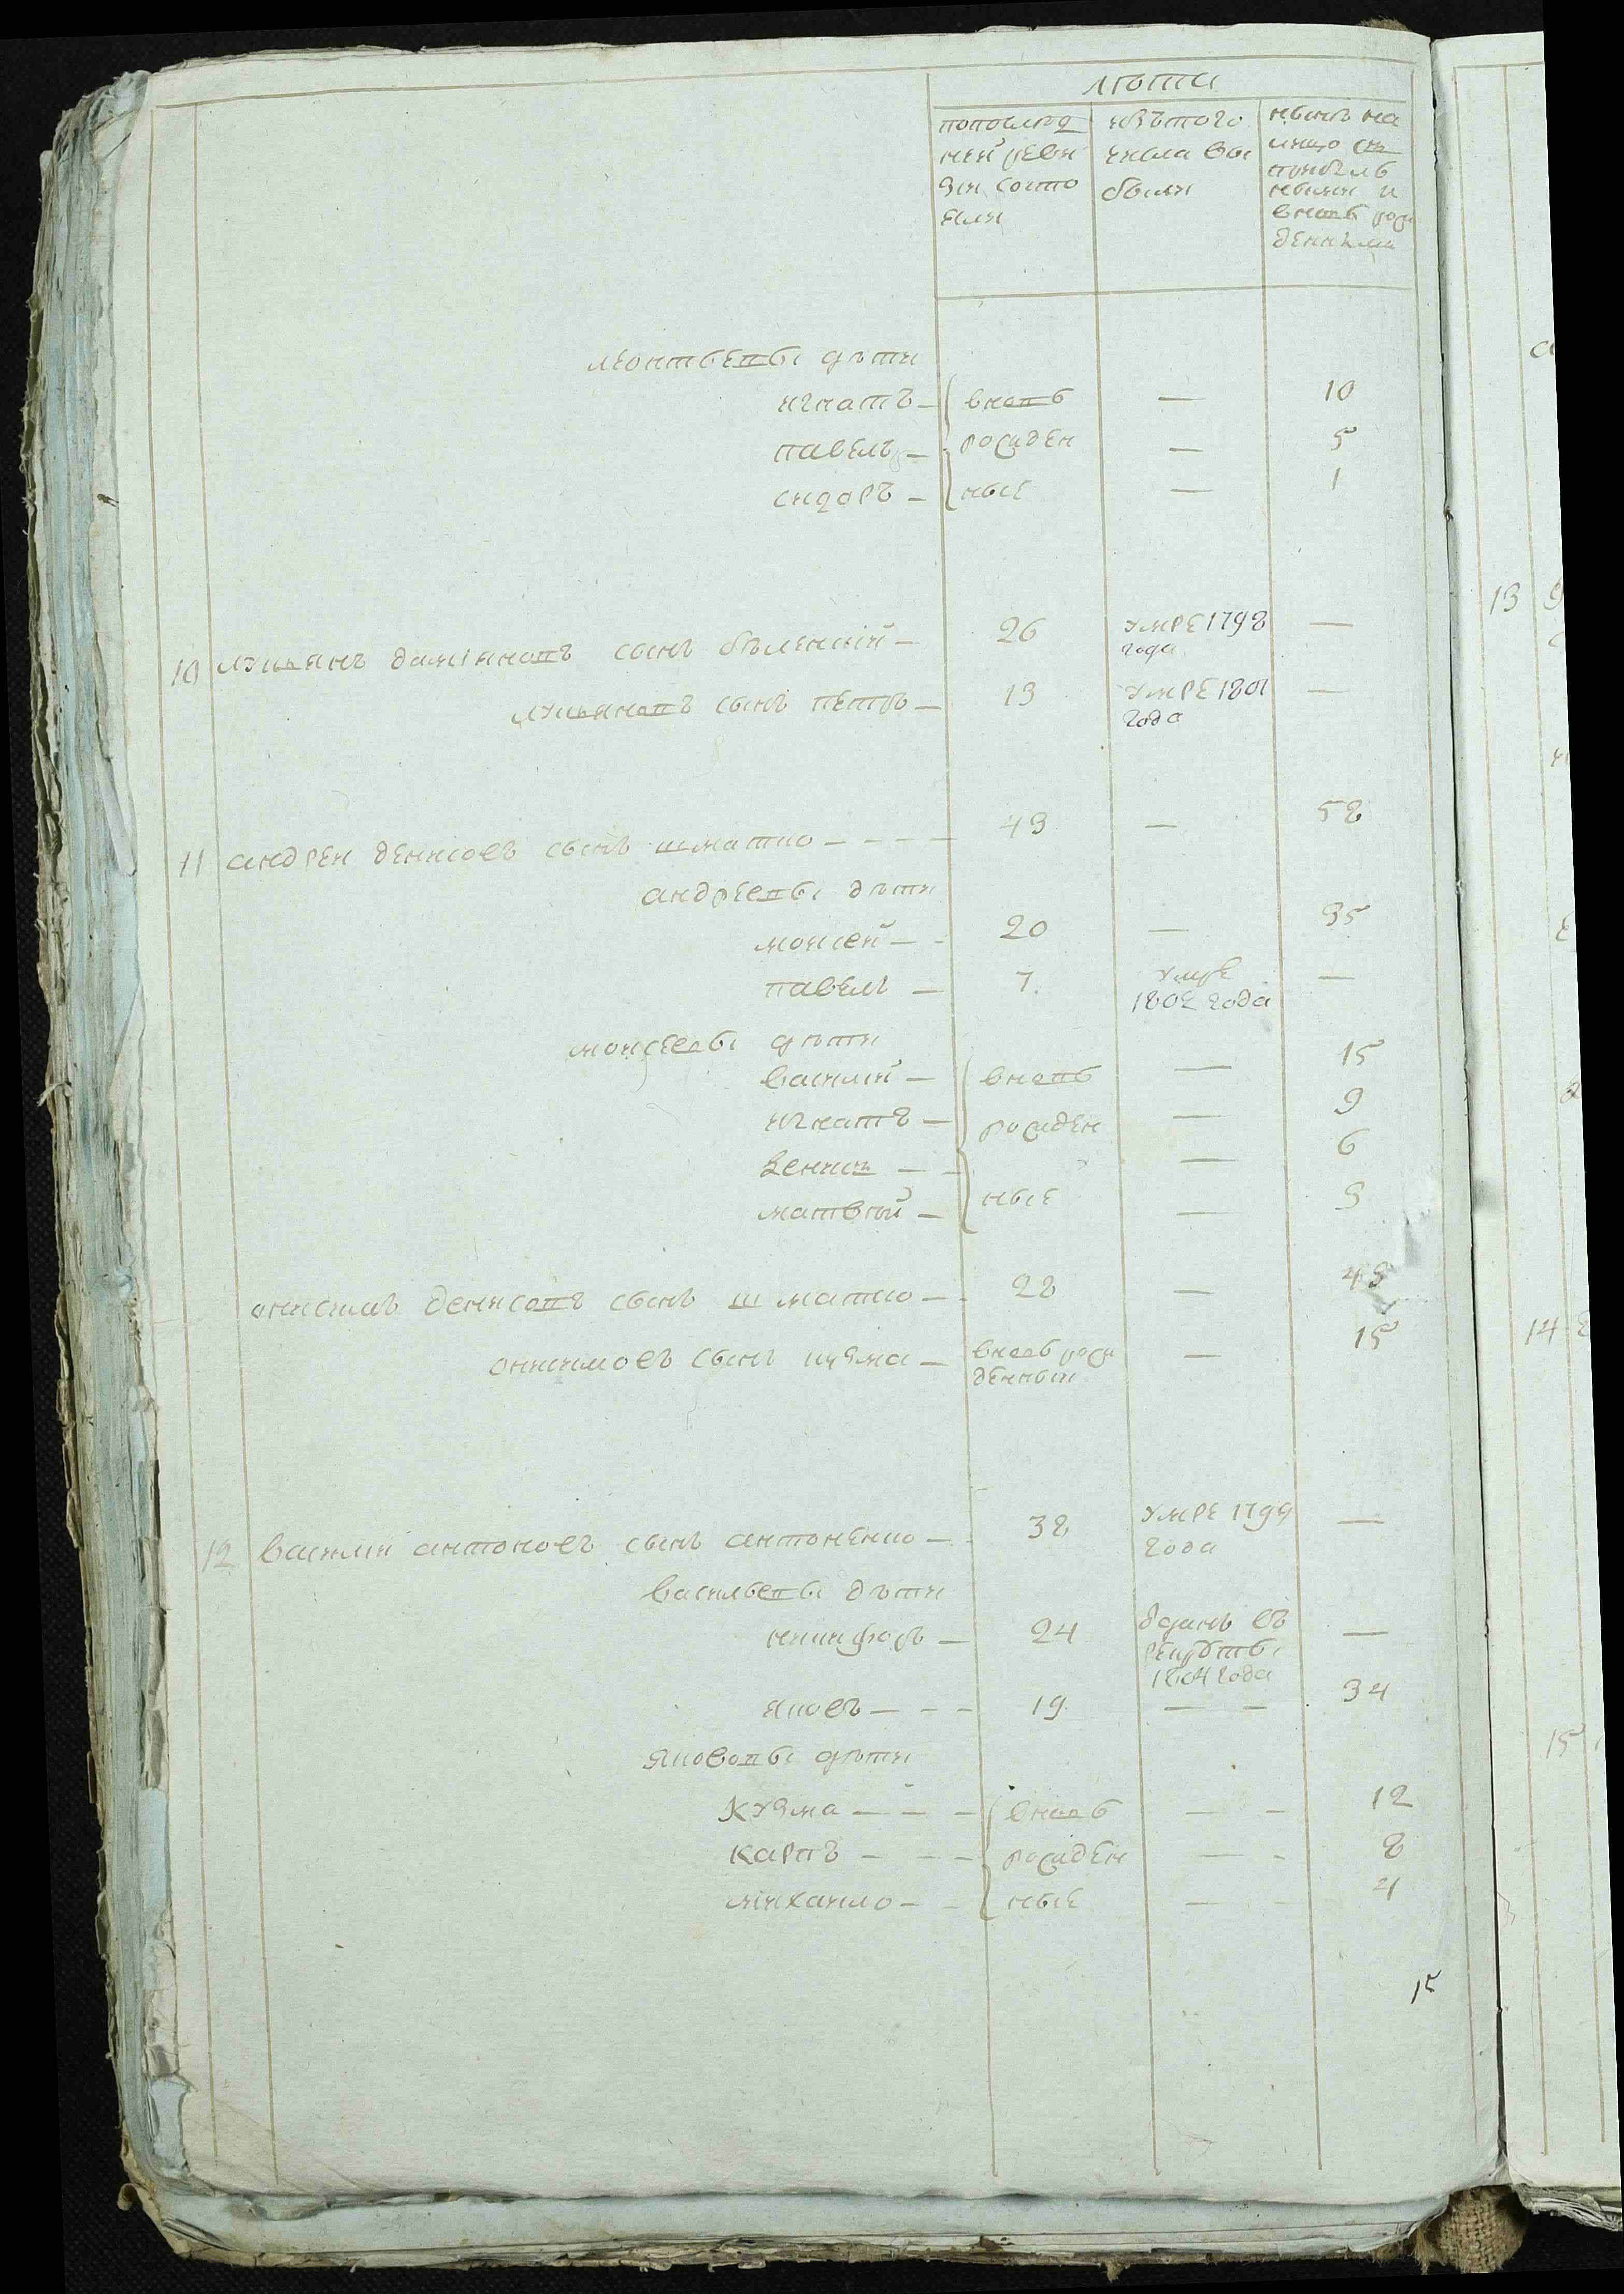 лѣта
попослѣд
ней реви
зіи состо
яли
изътого
числа вы
были
нынѣ на
лицо съ
прибыль
ными и
вновь рож
денными
леонтьевы дѣти
игнатъ — вновь — 10
павелъ — рожден — 5
сидоръ — ные — 1
10 лукьянъ даміяновъ сынъ бѣленкій — 26 умре 1798 —
года
лукьяновъ сынъ петръ — 13 умре 1801 —
года
11 андреи денисовъ сынъ шматко — — — — 43 — 58
андреевы дѣти
моисей — 20 — 35
павелъ — 7 умре —
1802 года
моисеевы дѣти
василій — вновь — 15
игнатъ — рожден — 9
— 6
матвѣй — ные — 3
онисимъ денисовъ сынъ шматко — 28 — 43
онисимовъ сынъ кузма — вновь рож — 15
денныи
12 василіи антоновъ сынъ антоненко — 38 умре 1799 —
года
васильевы дѣти
никифоръ — 24 зданъ въ —
рекруты
1804 года
яковъ — — — 19 — — 34
яковлевы дѣти
кузма — — — вновь — — 12
карпъ — — — рожден — — 8
михаило — — ные — — 4
15
13
14
15